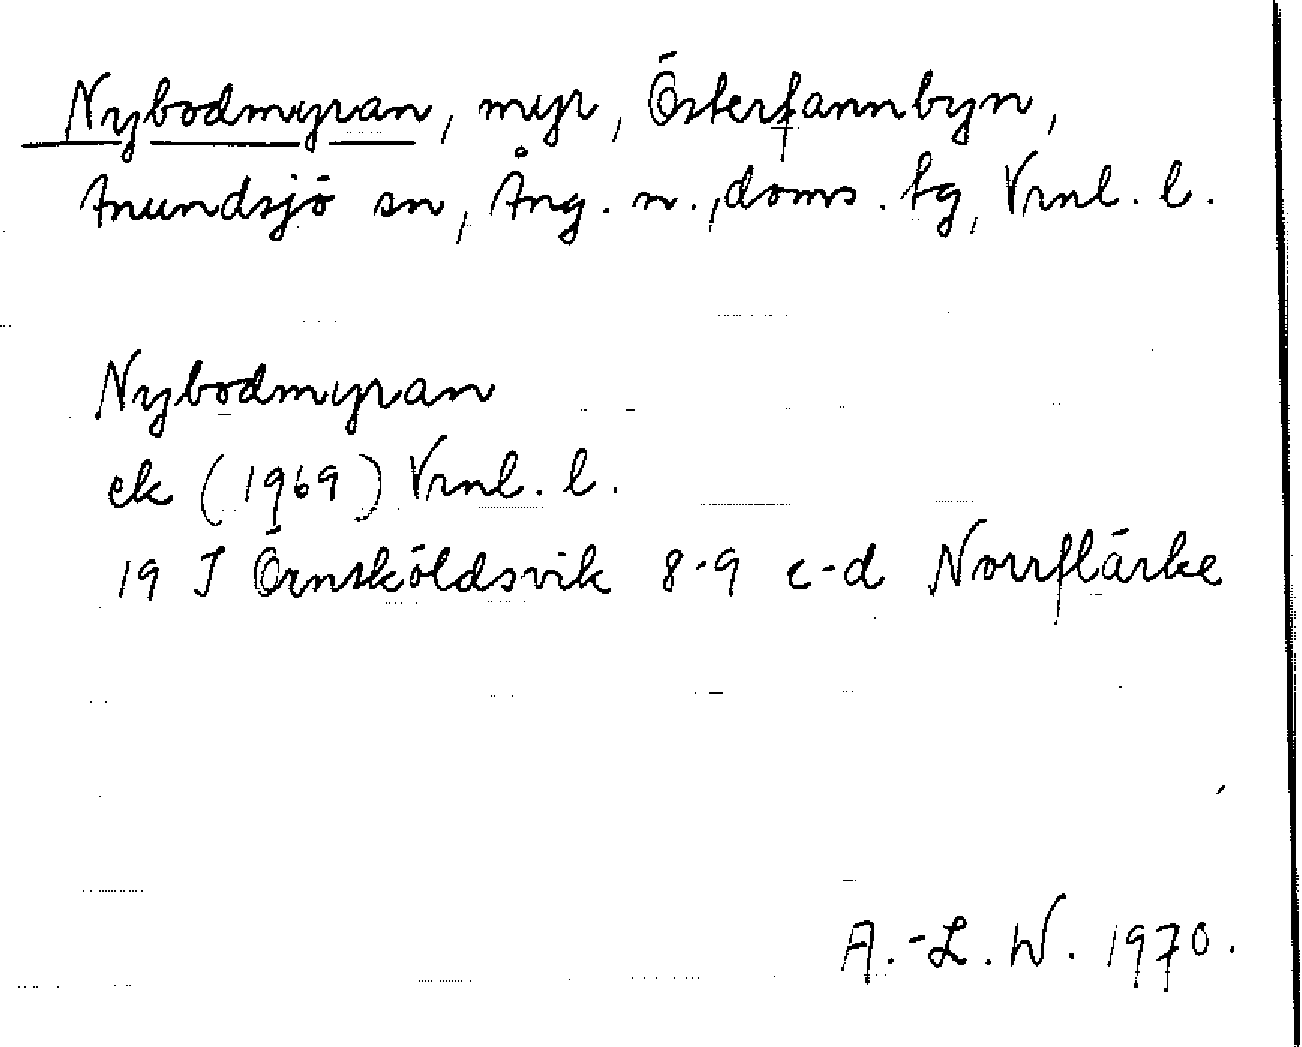 Nybodmyran, myr, Österfannbyn,
Anundsjö sn, Ång. n., doms. tg, Vrnl. l.
Nybodmyran
ek (1969) Vrnl. l.
19 J Örnsköldsvik 8-9 c-d Norrflärke
A.-L. W. 1970.